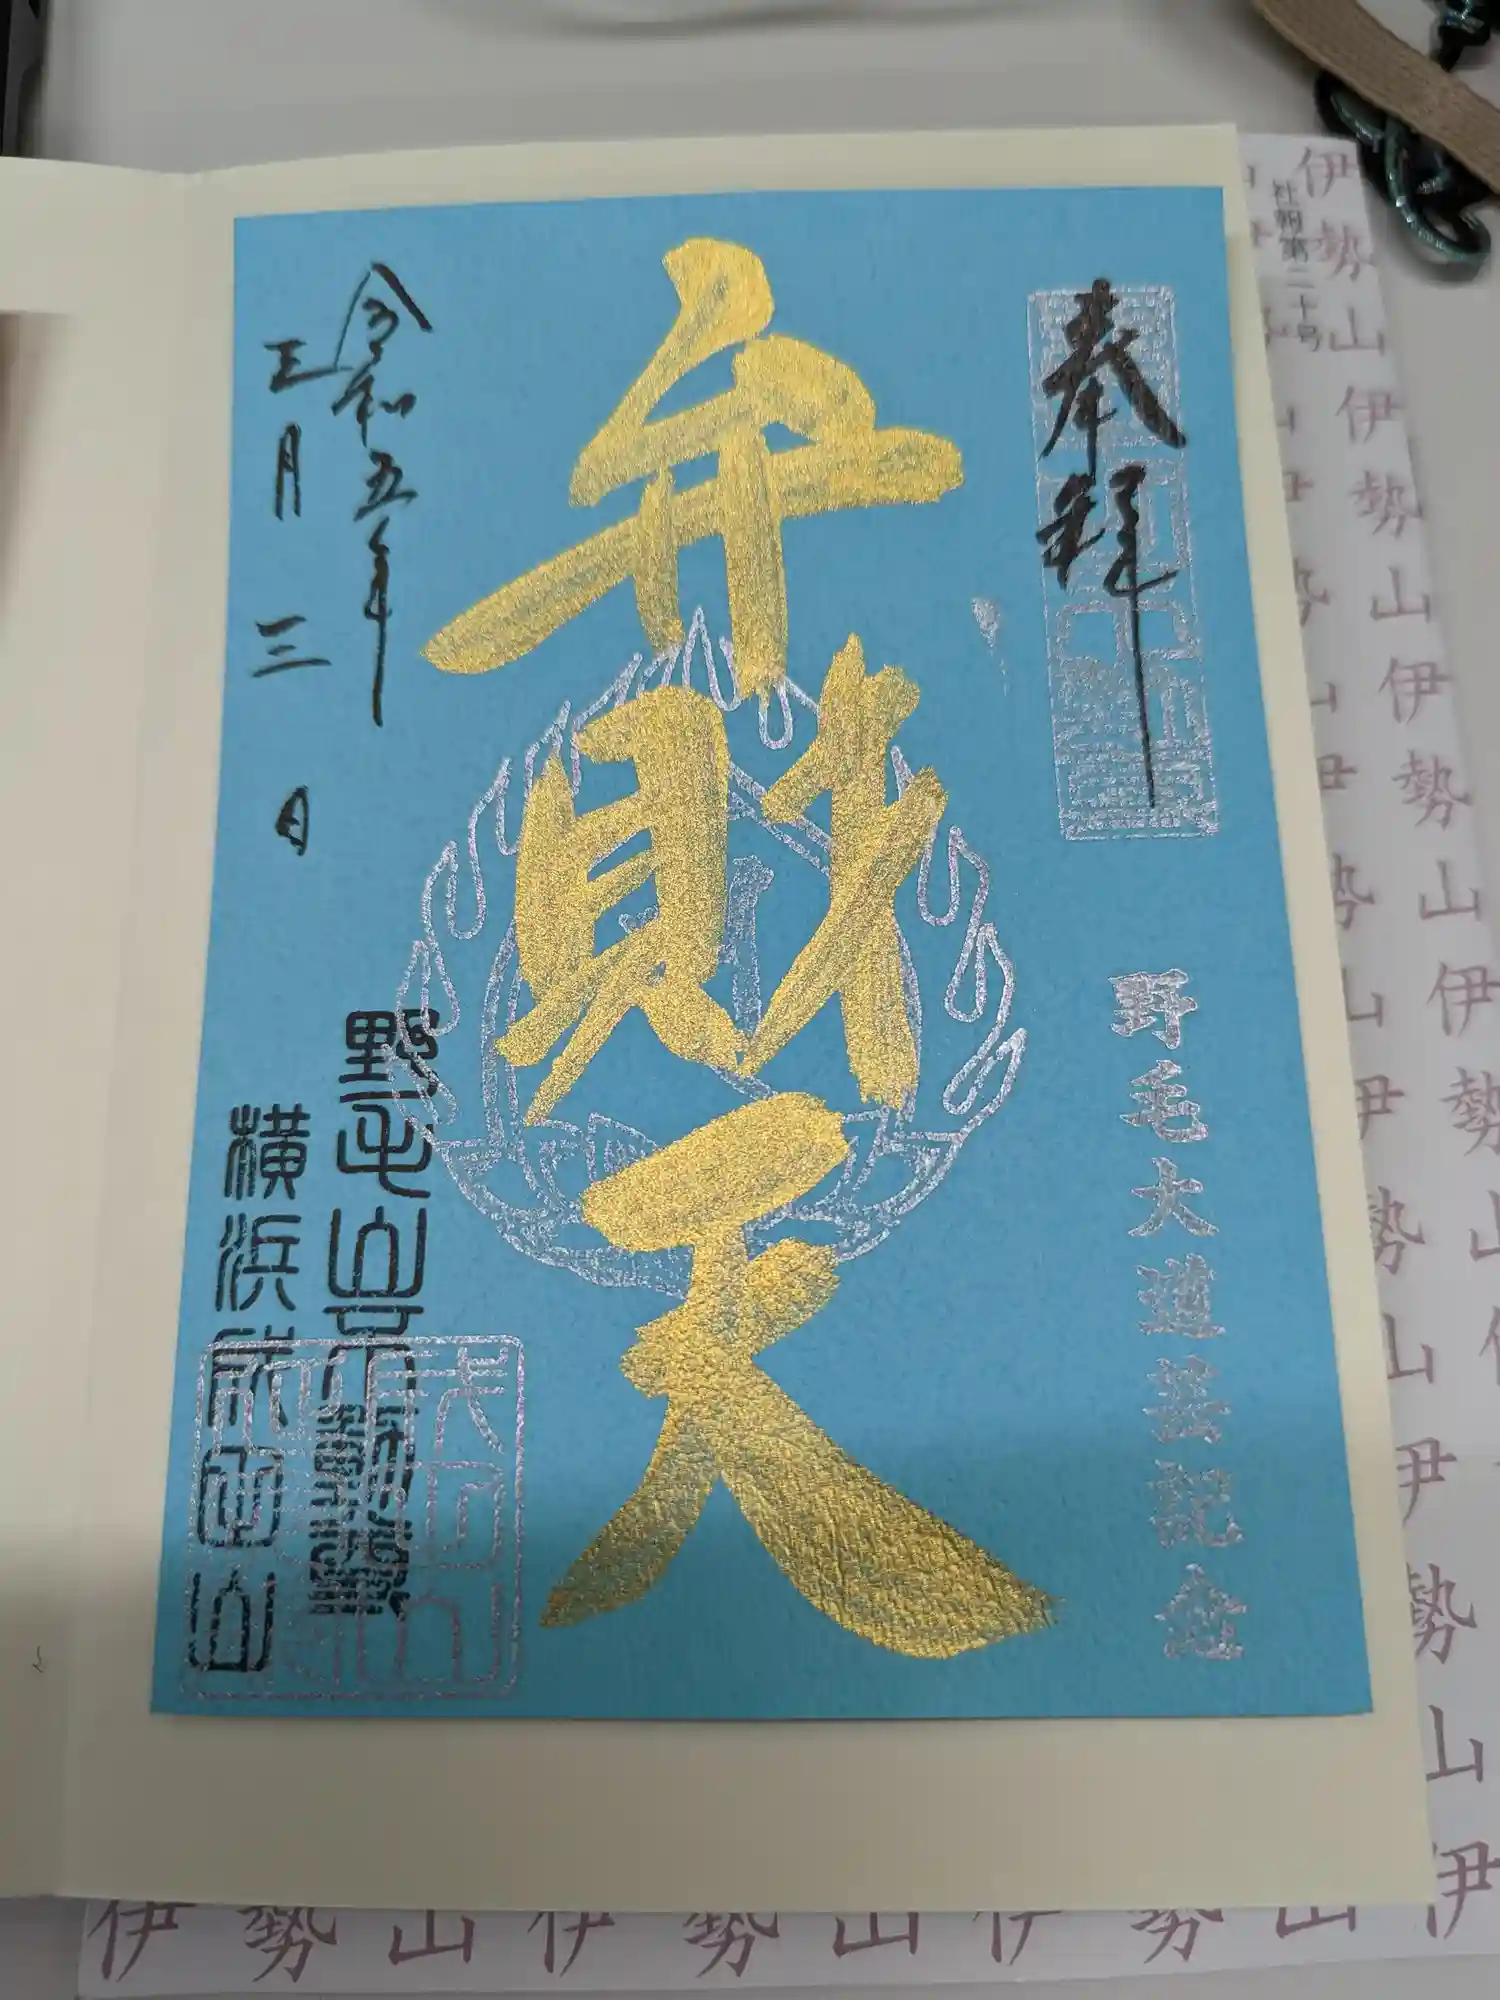 奉拝
野毛大道芸記念
弁財天
令和五年
五月三日
野毛山不動尊
横浜成田山
社報第二十号
伊勢山伊勢山伊勢山伊勢山
伊勢山伊勢山伊勢山伊